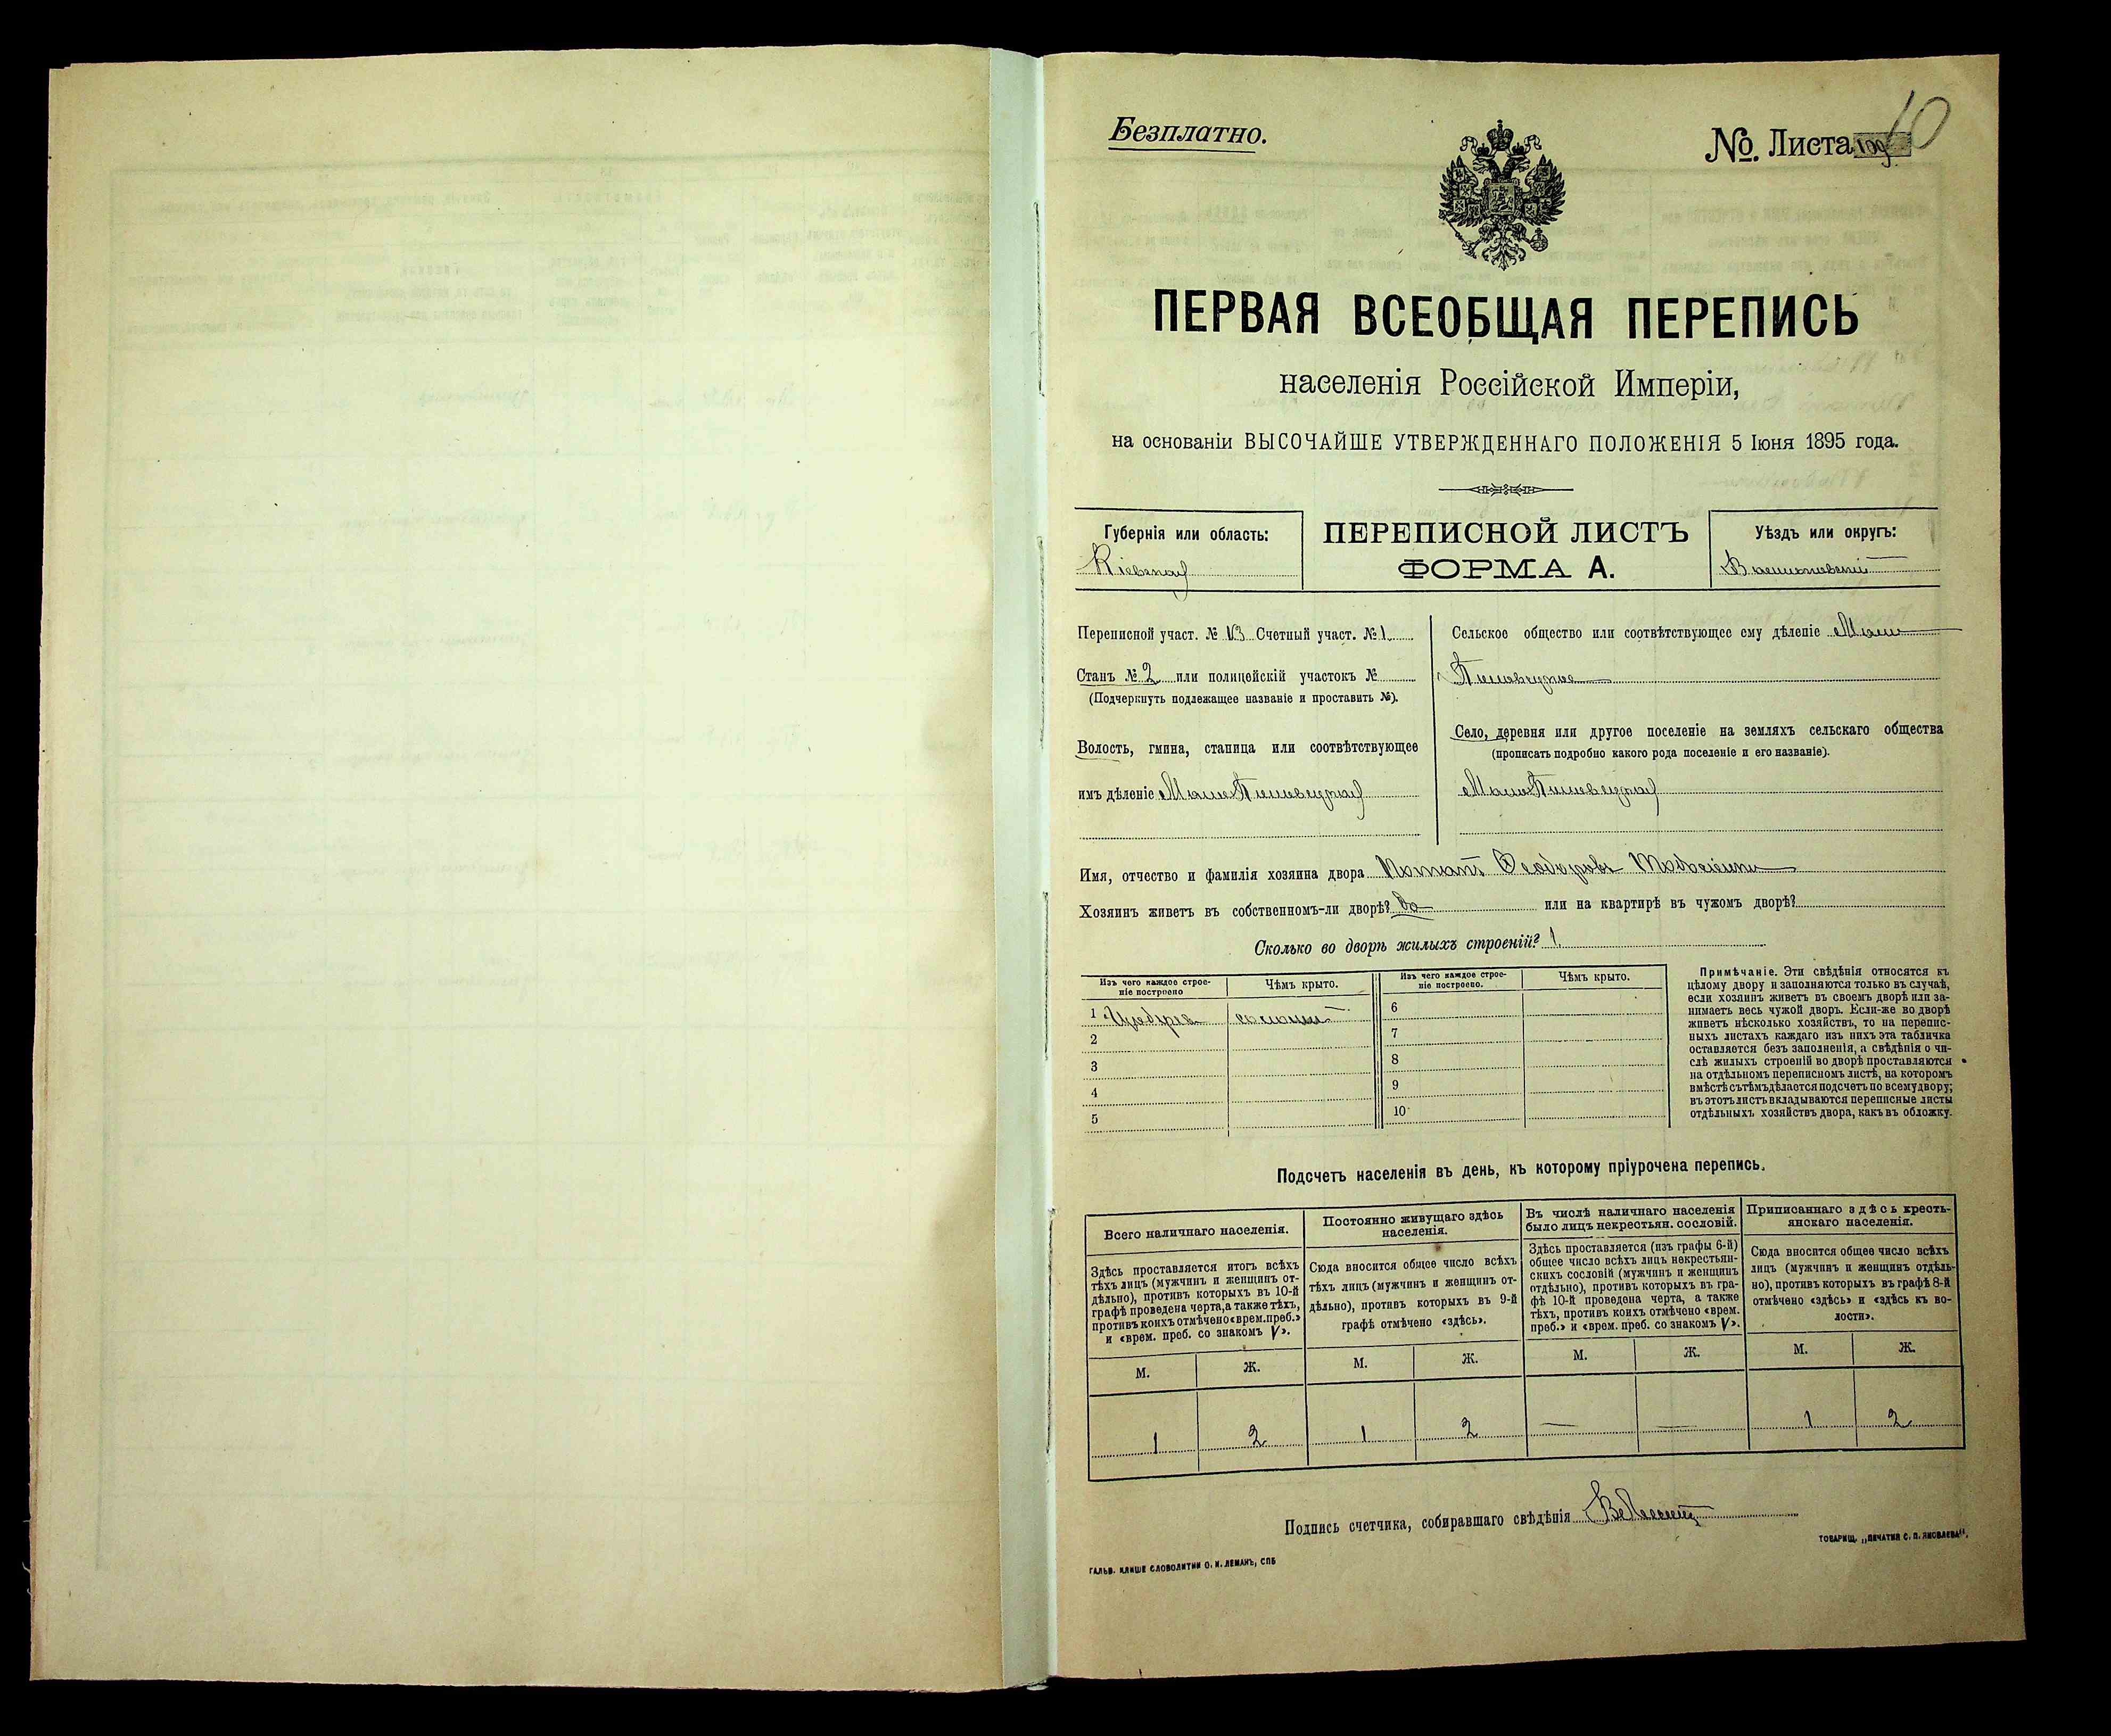 Безплатно.
№. Листа 109
10
ПЕРВАЯ ВСЕОБЩАЯ ПЕРЕПИСЬ
населенія Россійской Имперіи,
на основаніи ВЫСОЧАЙШЕ УТВЕРЖДЕННАГО ПОЛОЖЕНІЯ 5 Іюня 1895 года.
Губернія или область:
Кіевская
ПЕРЕПИСНОЙ ЛИСТЪ
ФОРМА А.
Уѣздъ или округъ:
Васильковскій
Переписной участ. № 13 Счетный участ. № 1
Станъ № 2 или полицейскій участокъ №
(Подчеркнуть подлежащее названіе и проставить №).
Волость, гмина, станица или соотвѣтствующее
имъ дѣленіе Мало
Сельское общество или соотвѣтствующее ему дѣленіе Мало
Село, деревня или другое поселеніе на земляхъ сельскаго общества
(прописать подробно какого рода поселеніе и его названіе).
Мало
Имя, отчество и фамилія хозяина двора Потапъ Феодоровъ
Хозяинъ живетъ въ собственномъ-ли дворѣ? да или на квартирѣ въ чужомъ дворѣ?
Сколько во дворѣ жилыхъ строеній? 1.
Изъ чего каждое строе-
ніе построено
Чѣмъ крыто.
Изъ чего каждое строе-
ніе построено.
Чѣмъ крыто.
1 Издерева соломой
2
3
4
5
6
7
8
9
10
Примѣчаніе. Эти свѣдѣнія относятся къ
цѣлому двору и заполняются только въ случаѣ,
если хозяинъ живетъ въ своемъ дворѣ или за-
нимаетъ весь чужой дворъ. Если-же во дворѣ
живетъ нѣсколько хозяйствъ, то на перепис-
ныхъ листахъ каждаго изъ нихъ эта табличка
оставляется безъ заполненія, а свѣдѣнія о чи-
слѣ жилыхъ строеній во дворѣ проставляются
на отдѣльномъ переписномъ листѣ, на которомъ
вмѣстѣ съ тѣмъ дѣлается подсчетъ по всему двору;
въ этотъ листъ вкладываются переписные листы
отдѣльныхъ хозяйствъ двора, какъ въ обложку.
Подсчетъ населенія въ день, къ которому пріурочена перепись.
Всего наличнаго населенія.
Здѣсь проставляется итогъ всѣхъ
тѣхъ лицъ (мужчинъ и женщинъ от-
дѣльно), противъ которыхъ въ 10-й
графѣ проведена черта, а также тѣхъ,
противъ коихъ отмѣчено «врем. преб.»
и «врем. преб. со знакомъ V».
Постоянно живущаго здѣсь
населенія.
Сюда вносится общее число всѣхъ
тѣхъ лицъ (мужчинъ и женщинъ от-
дѣльно), противъ которыхъ въ 9-й
графѣ отмѣчено «здѣсь».
Въ числѣ наличнаго населенія
было лицъ некрестьян. сословій.
Здѣсь проставляется (изъ графы 6-й)
общее число всѣхъ лицъ некрестьян-
скихъ сословій (мужчинъ и женщинъ
отдѣльно), противъ которыхъ въ гра-
фѣ 10-й проведена черта, а также
тѣхъ, противъ коихъ отмѣчено «врем.
преб.» и «врем. преб. со знакомъ V».
Приписаннаго здѣсь кресть-
янскаго населенія.
Сюда вносится общее число всѣхъ
лицъ (мужчинъ и женщинъ отдѣль-
но), противъ которыхъ въ графѣ 8-й
отмѣчено «здѣсь» и «здѣсь къ во-
лости».
М. Ж. М. Ж. М. Ж. М. Ж.
1 2 1 2 — — 1 2
Подпись счетчика, собиравшаго свѣдѣнія
ГАЛЬВ. КЛИШЕ СЛОВОЛИТНИ О. И. ЛЕМАНЪ, СПБ
ТОВАРИЩ. „ПЕЧАТНЯ С. П. ЯКОВЛЕВА“.